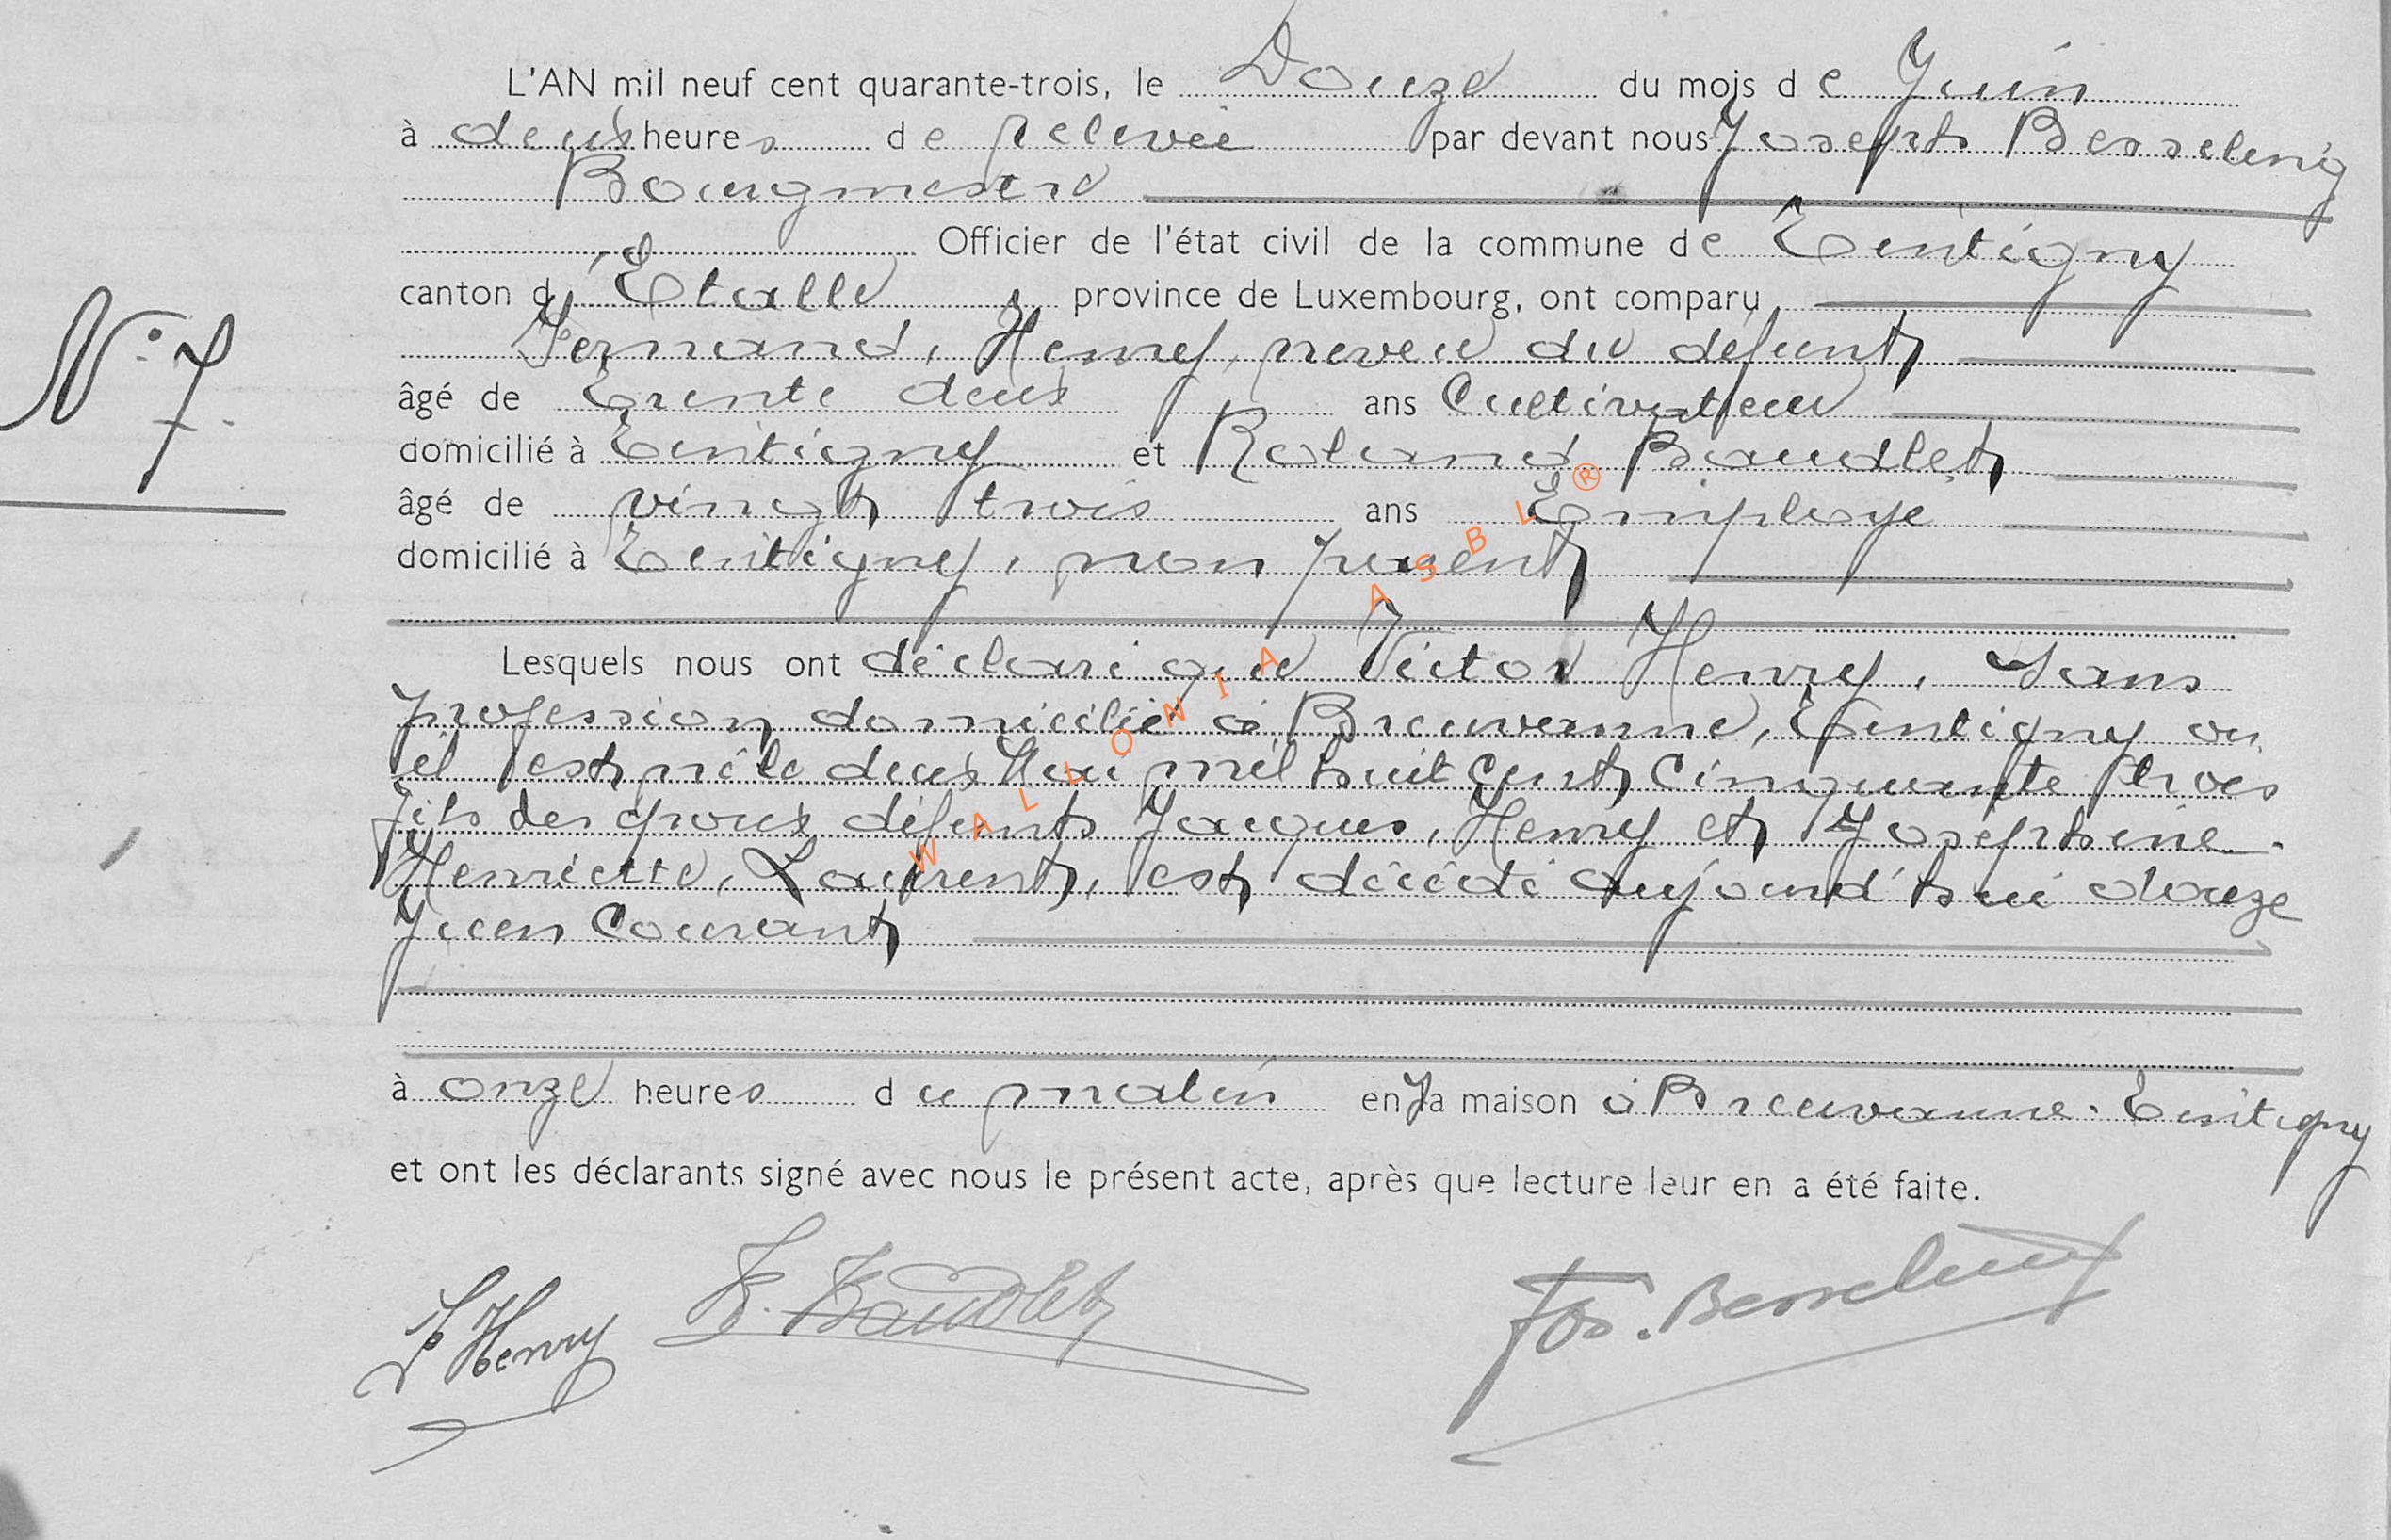 L'AN mil neuf cent quarante-trois, le Douze du mois de Juin
à deux heures de relevée par devant nous Joseph Besseling
Bourgmestre
Officier de l'état civil de la commune de Tintigny
canton d'Etalle province de Luxembourg, ont comparu
N° 7
Fernand, Henry, neveu du défunt
âgé de Trente deux ans Cultivateur
domicilié à Tintigny et Roland Baudlet
âgé de vingt trois ans Employé
domicilié à Tintigny, non parent
Lesquels nous ont déclaré que Victor Henry, Sans
profession domicilié à Breuvanne, Tintigny ou
il est né le deux Mai mil huit cent cinquante trois
fils des époux défunts Jacques, Henry et Josephine
Henriette, Laurent, est décédé aujourd'hui douze
Juin Courant
à onze heures du matin en sa maison à Breuvanne. Tintigny
et ont les déclarants signé avec nous le présent acte, après que lecture leur en a été faite.
F Henry R. Baudlet Jos. Besseling
WALLONIA ASBL ®